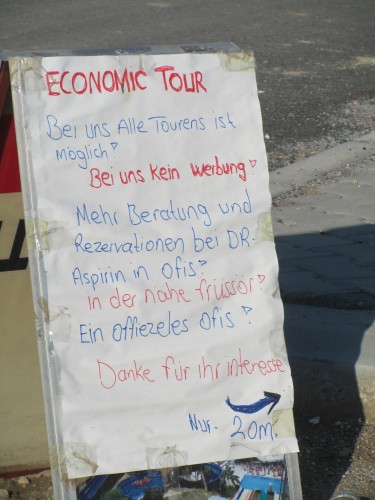 ECONOMIC TOUR
Bei uns Alle Tourens ist
möglich!
Bei uns kein Werbung!
Mehr Beratung und
Rezervationen bei DR.
Aspirin in ofis!
in der nähe früssör!
Ein offiezeles ofis!
Danke für ihr interesse
Nur. 20m.